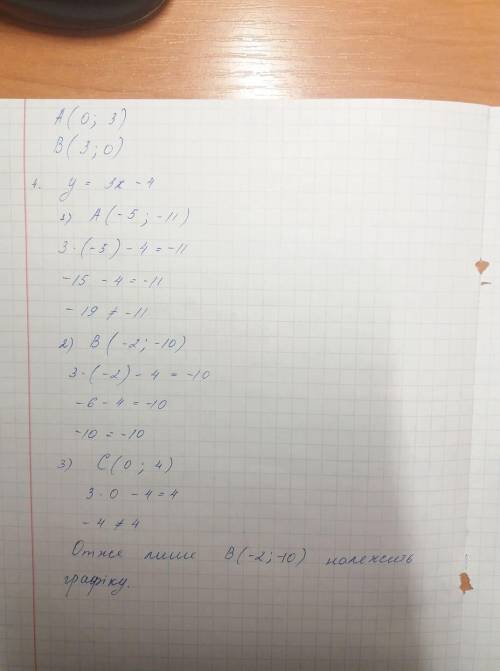 A(0; 3)
B(3; 0)
4. y = 3x - 4
1) A(-5; -11)
3·(-5) - 4 = -11
-15 - 4 = -11
-19 ≠ -11
2) B(-2; -10)
3·(-2) - 4 = -10
-6 - 4 = -10
-10 = -10
3) C(0; 4)
3·0 - 4 = 4
-4 ≠ 4
Отже лише B(-2; -10) належить
графіку.